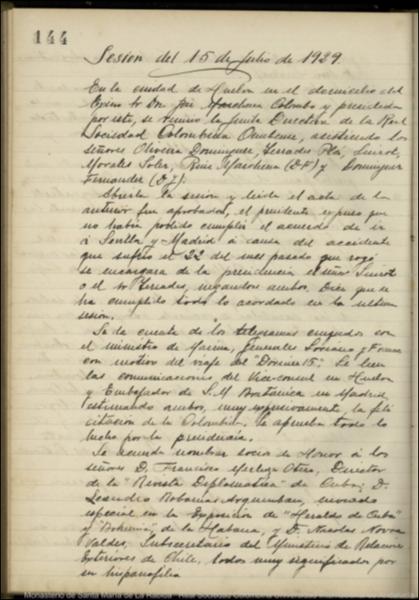 144
Sesion del 15 de Julio de 1929.
En la ciudad de Huelva en el domicilio del
Excmo Sr Dn. José Marchena Colombo y presidida
por este, se reunio la Junta Directiva de la Real
Sociedad Colombina Onubense, asistiendo los
señores Oliveira Dominguez, Terrades Plá, Siurot,
Morales Soler, Ruiz Marchena (D. F) y Dominguez
Fernandez (D. J).
Abierta la sesion y leida el acta de la
anterior fue aprobada, el presidente expuso que
no habia podido cumplir el acuerdo de ir
á Sevilla y Madrid á causa del accidente
que sufrio el 22 del mes pasado que rogó
se encargara de la presidencia el señor Siurot
o el Sr Terrades, negandose ambos. Dice que se
ha cumplido todo lo acordado en la ultima
sesion.
Se da cuenta de los telegramas cruzados con
el ministro de Marina, Generales Soriano y Franco
con motivo del viaje del "Dornier 15"; Se leen
las comunicaciones del Vice-consul en Huelva
y Embajador de S. M. Británica en Madrid,
estimando ambos, muy expresivamente la feli
citacion de la Colombina. Se aprueba todo lo
hecho por la presidencia.
Se acuerda nombrar socio de Honor á los
señores D. Francisco Otero, Director
de la "Revista Diplomatica" de Cuba; D.
Leandro enviado
especial en la Exposicion de "Heraldo de Cuba"
y "Bohemia", de la Habana, y D. Nicolas Novoa
Valdes, Subsecretario del Ministerio de Relaciones
Exteriores de Chile, todos muy significados por
su hispanofilia